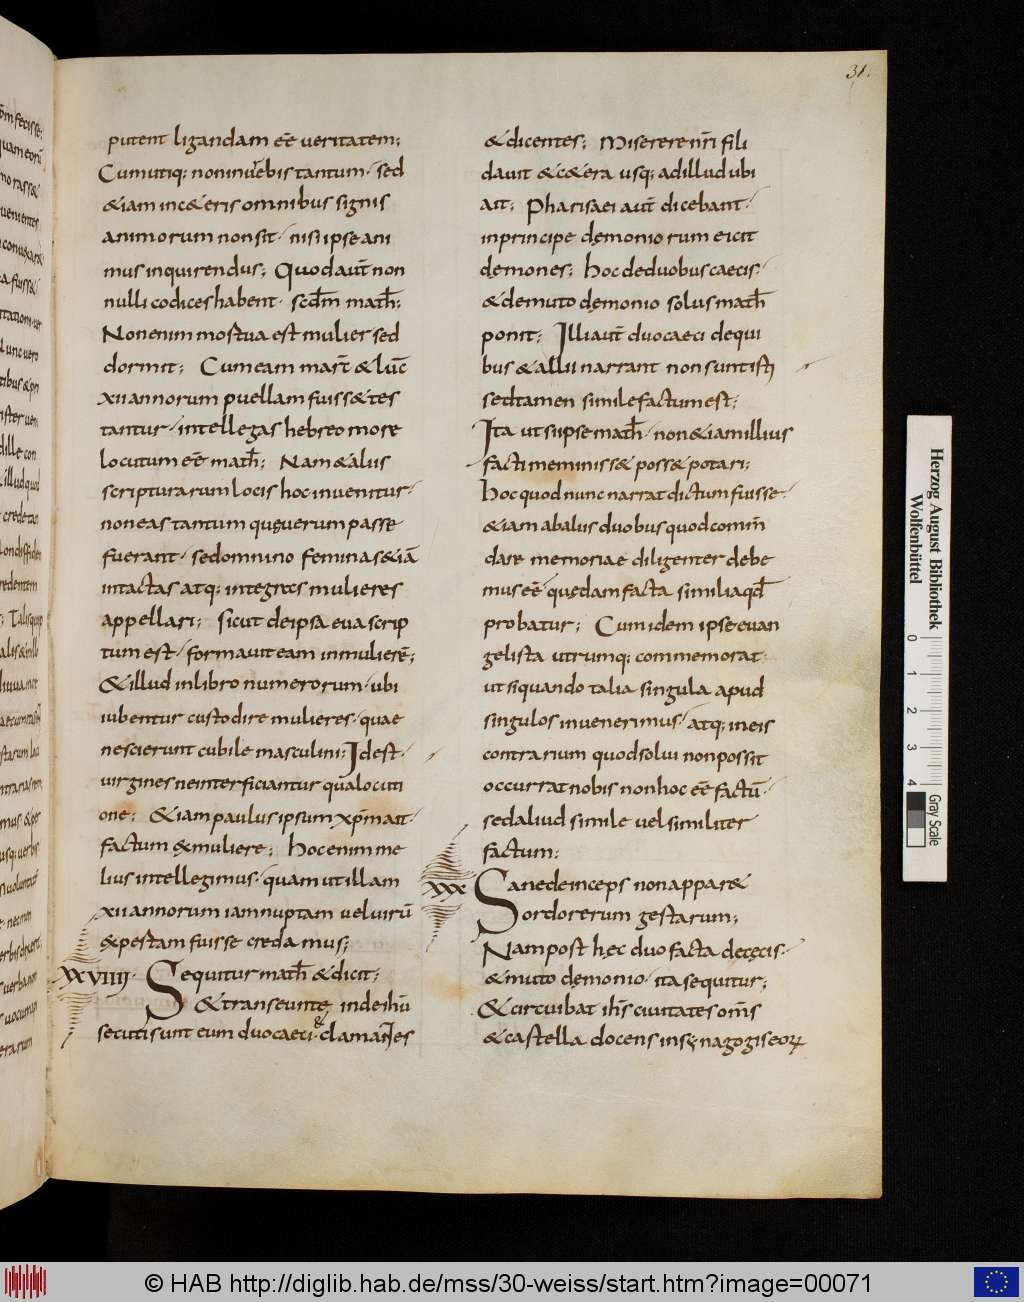 31.
putent ligandam eē veritatem;
Cumutiq; noninuerbis tantum· sed
&iam inc&eris omnibus signis
animorum nonsit· nisi ipse ani
mus inquirendus; Quodaut̄ non
nulli codices habent· scd̄m math̄;
Nonenim mortua est mulier sed
dormit; Cum eam marc̄ & luc̄
xii annorum puellam fuiss&tes
tantur· intellegas hebreo more
locutum eē math̄; Nam&aliis
scripturarum locis hoc inuenitur·
noneas tantum quęuerum passe
fuerant· sedomnino feminas&iā
intactas atq; integras mulieres
appellari; Sicut deipsa eua scrip
tum est· formauit eam inmulierē;
&illud inlibro numerorum· ubi
iubentur custodire mulieres· quae
nescierunt cubile masculini; Idest·
uirgines neinterficiantur qualocuti
one; &iam paulus ipsum xpm̄ ait·
factum exmuliere; Hocenim me
lius intellegimus· quam ut illam
xii annorum iamnuptam ueluirū
expertam fuisse credamus;
XXVIIII· Sequitur math̄ & dicit;
& transeunte inde ihū
secuti sunt eum duo caeci· clamantes
&
&dicentes; Miserere nr̄i fili
dauit &c&era usq; adillud ubi
ait; Pharisaei aut̄ dicebant·
inprincipe demoniorum eicit
demones; hoc deduobus caecis·
&demuto demonio solus math̄
ponit; Illi aut̄ duo caeci dequi
bus &alii narrant non sunt isti
sed tamen simile factum est;
Ita ut si ipse math̄· non&iam illius
facti meminiss& poss& putari;
hoc quod nunc narrat dictum fuisse·
&iam abaliis duobus quod comm̄
dare memoriae diligenter debe
mus eē quedam facta similia qd̄
probatur; Cum idem ipse euan
gelista utrumq; commemorat·
ut siquando talia singula apud
singulos inuenerimus· atq; ineis
contrarium quod solui non possit
occurrat nobis non hoc eē factū·
sed aliud simile uel similiter
factum;
XXX Sane deinceps non appar&
ordo rerum gestarum;
Nam post hęc duo facta decęcis·
&muto demonio· ita sequitur;
&circuibat ih̄s ciuitates om̄s
&castella docens insynagogis eorꝝ
Herzog August Bibliothek
Wolfenbüttel
0 1 2 3 4
Gray Scale
© HAB http://diglib.hab.de/mss/30-weiss/start.htm?image=00071